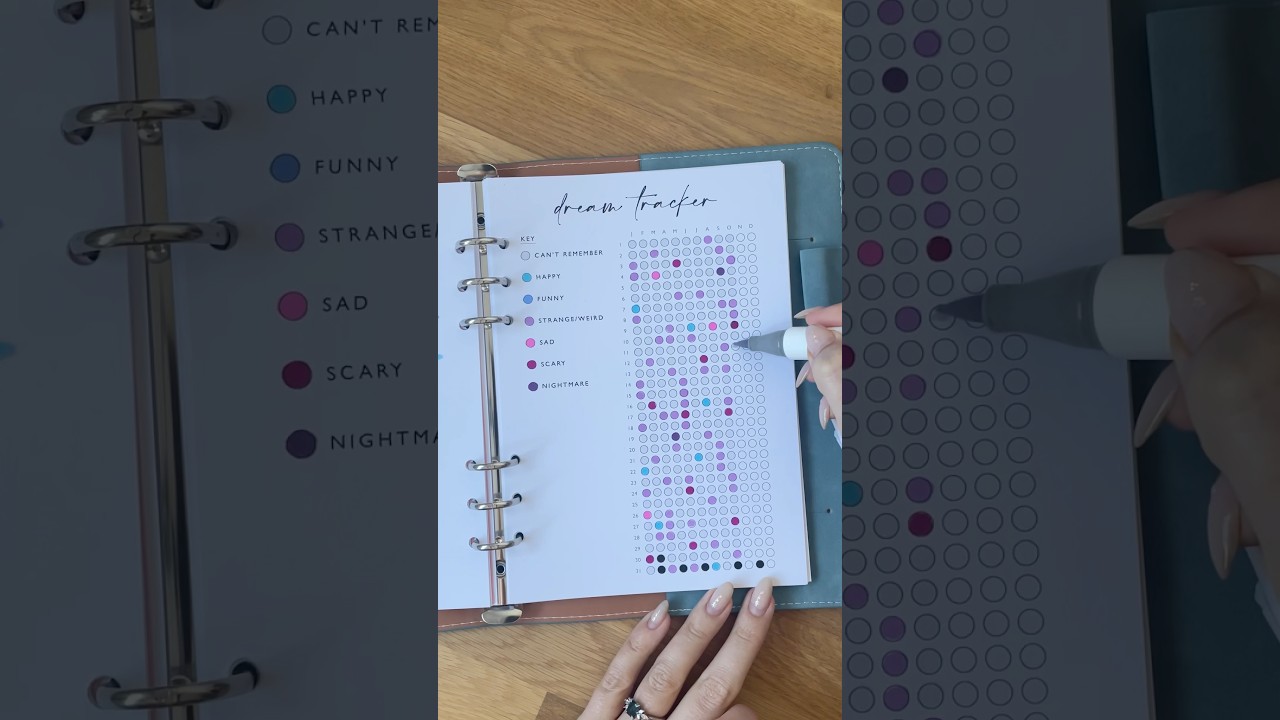 CAN'T REM
HAPPY
FUNNY
STRANGE/
SAD
SCARY
NIGHTMA
dream tracker
KEY
CAN'T REMEMBER
HAPPY
FUNNY
STRANGE/WEIRD
SAD
SCARY
NIGHTMARE
J F M A M J J A S O N D
1
2
3
4
5
6
7
8
9
10
11
12
13
14
15
16
17
18
19
20
21
22
23
24
25
26
27
28
29
30
31